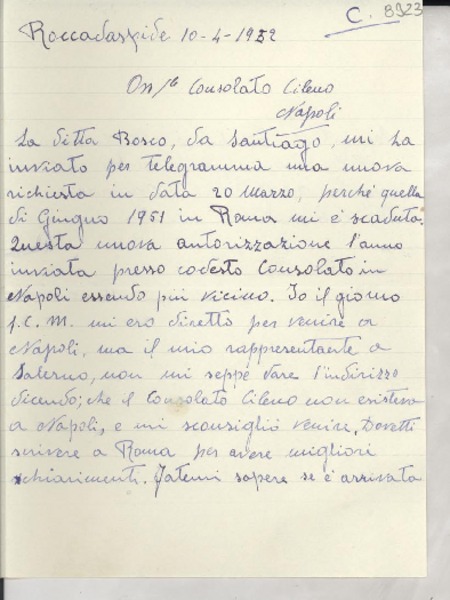 C. 8923
Roccadaspide 10-4-1952
On/le Consolato Cileno
Napoli
La ditta Bosco, da Santiago, mi ha
inviato per telegramma una nuova
richiesta in data 20 Marzo, perché quella
di Giugno 1951 in Roma mi è scaduta.
Questa nuova autorizzazione l'anno
inviata presso codesto Consolato in
Napoli essendo più vicino. Io il giorno
1. C. M. mi ero diretto per venire a
Napoli, ma il mio rappresentante a
Salerno, non mi seppe dare l'indirizzo
dicendo; che il Consolato Cileno non esisteva
a Napoli, e mi sconsigliò venire, Dovetti
scrivere a Roma per avere migliori
schiarimenti. Fatemi sapere se è arrivata